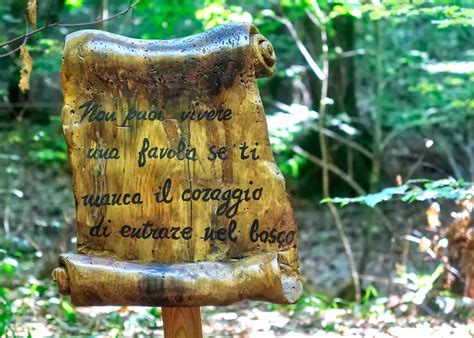 Non puoi vivere
una favola se ti
manca il coraggio
di entrare nel bosco